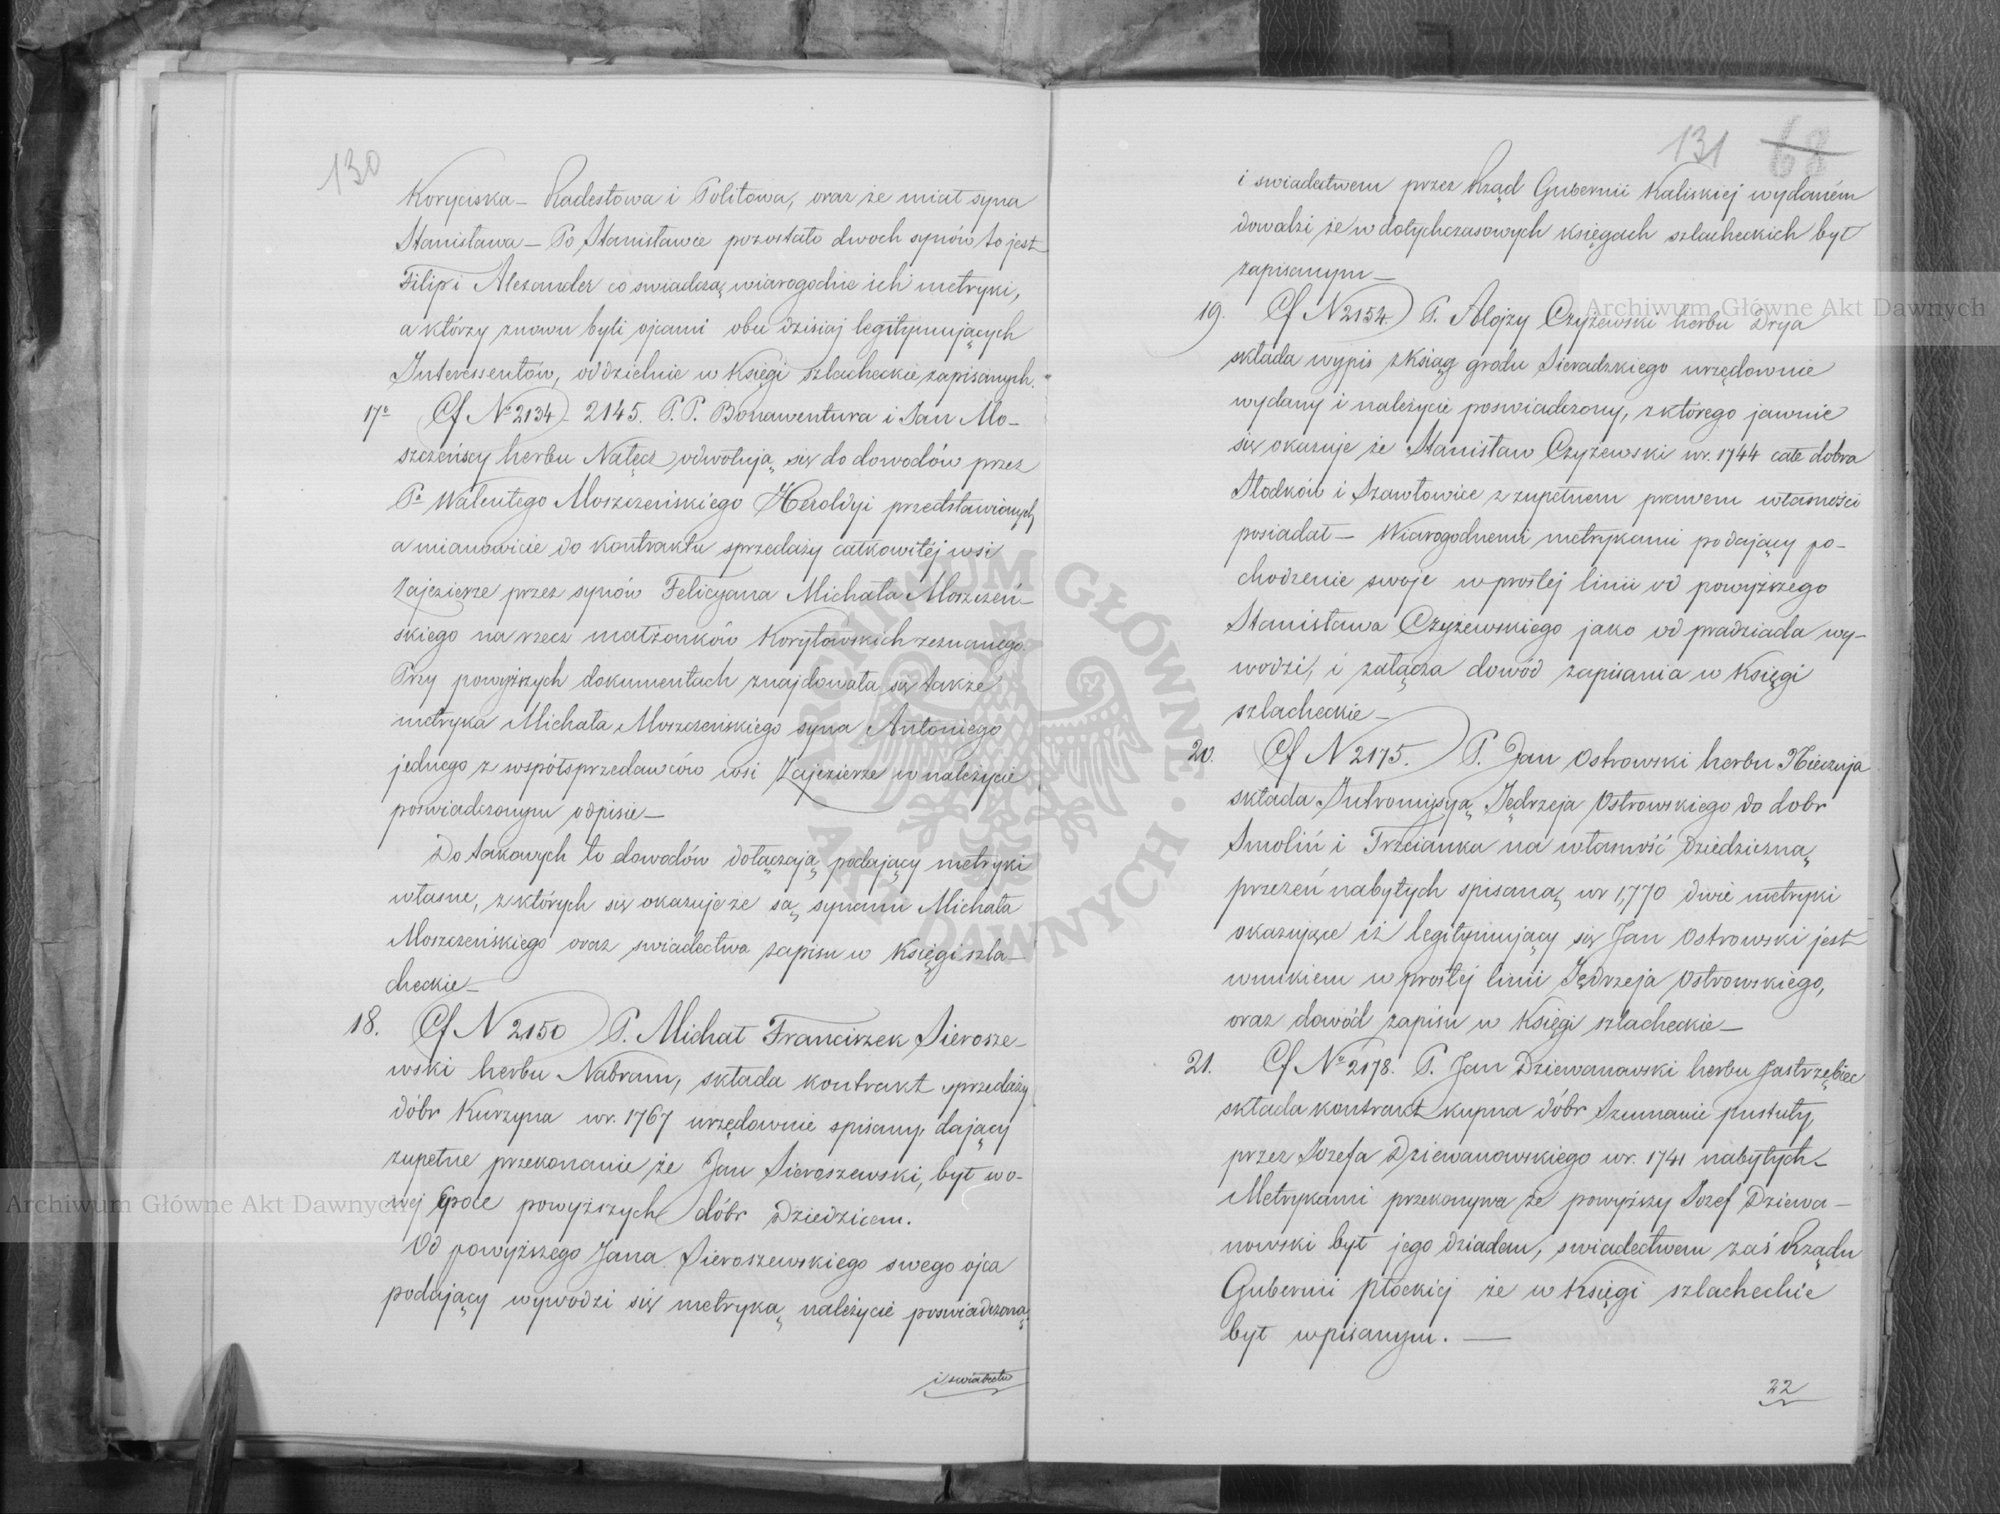 130
Koryciska – Radestowa i Politowa, oraz że miał syna
Stanisława – Po Stanisławie pozostało dwoch synów to jest
Filip i Alexander co swiadczą wiarogodnie ich metryki,
a którzy znowu byli ojcami obu dzisiaj legitymujących
Interessentów, oddzielnie w Księgi szlacheckie zapisanych.
17º Cf Nº 2134 – 2145. P.P. Bonawentura i Jan Mo-
szczeńscy herbu Nałęcz odwołują się do dowodów przez
Pª Walentego Moszczeńskiego Heroldyi przedstawionych
a mianowicie do kontraktu sprzedaży całkowitéj wsi
Zajezierze przez synów Felicyana Michała Moszczeń-
skiego na rzecz małżonków Korytowskich zeznanego.
Przy powyższych dokumentach znajdowała się także
metryka Michała Moszczeńskiego syna Antoniego
jednego z współsprzedawców wsi Zajezierze w należycie
poswiadczonym odpisie –
Do takowych to dowodów dołączają podający metryki
własne, z których się okazuje że są synami Michała
Moszczeńskiego oraz swiadectwa zapisu w Księgi szla-
checkie –
18. Cf N 2150 P. Michał Franciszek Sierosze-
wski herbu Nabram, składa kontrakt sprzedaży
dóbr Kurzyna w r. 1767 urzędownie spisany, dający
zupełne przekonanie że Jan Sieroszewski, był wo-
wej Epoce powyższych dóbr Dziedzicem.
Od powyższego Jana Sieroszewskiego swego ojca
podający wywodzi się metryką należycie poswiadczoną
i swiadectw
131 68
i swiadectwem przez Rząd Gubernii Kaliskiej wydaném
dowodzi że w dotychczasowych księgach szlacheckich był
zapisanym –
19. Cf N 2154 P. Alojzy Czyżewski herbu Drya
składa wypis z Ksiąg grodu Sieradzkiego urzędownie
wydany i należycie poswiadczony, z którego jawnie
się okazuje że Stanisław Czyżewski w r. 1744 całe dobra
Słodków i Szawłowice z zupełnem prawem własności
posiadał – Wiarogodnemi metrykami podający po-
chodzenie swoje w prostej linii od powyższego
Stanisława Czyżewskiego jako od pradziada wy-
wodzi, i załącza dowód zapisania w Księgi
szlacheckie –
20. Cf N 2175. P. Jan Ostrowski herbu Nieczuja
składa Intromisyą Jędrzeja Ostrowskiego do dobr
Smolin i Trzcianka na własność Dziedziczną
przezeń nabytych spisaną w r 1,770 dwie metryki
okazujące iż legitymujący się Jan Ostrowski jest
wnukiem w prostej linii Jędrzeja Ostrowskiego,
oraz dowód zapisu w Księgi szlacheckie –
21. Cf Nº 2178. P. Jan Dziewanowski herbu Jastrzębiec
składa kontrakt kupna dóbr Szumanie pustuły
przez Jozefa Dziewanowskiego w r. 1741 nabytych –
Metrykami przekonywa że powyższy Jozef Dziewa-
nowski był jego dziadem, swiadectwem zaś Rządu
Gubernii Płockiej że w Księgi szlacheckie
był wpisanym. —
22
Archiwum Główne Akt Dawnych
Archiwum Główne Akt Dawnych
ARCHIWUM GŁÓWNE AKT DAWNYCH